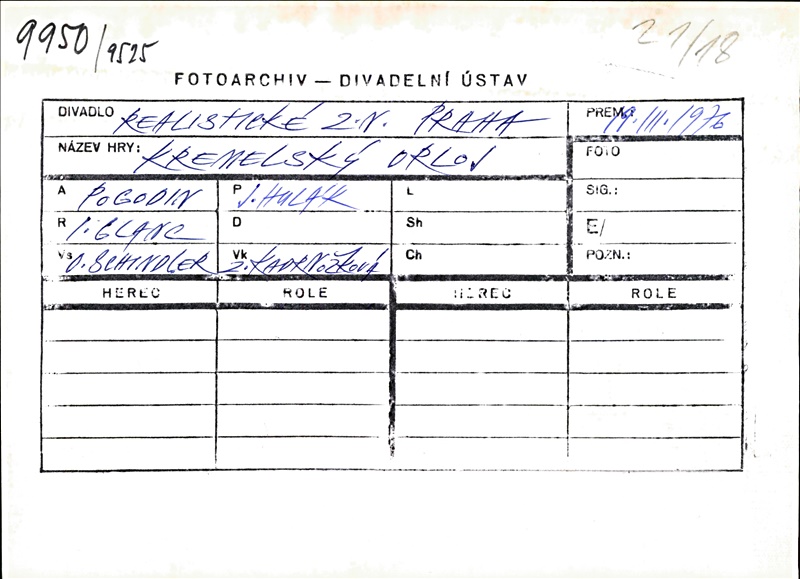 9950/9525
21/18
FOTOARCHIV — DIVADELNÍ ÚSTAV
DIVADLO REALISTICKÉ Z.N. PRAHA PREM. 19.III.1976
NÁZEV HRY: KREMELSKÝ ORLOJ FOTO
A POGODIN P J. HULÁK L SIG.:
R P. GLANC D Sh E/
Vs O. SCHINDLER Vk Z. KADRNOŽKOVÁ Ch POZN.:
HEREC ROLE HEREC ROLE